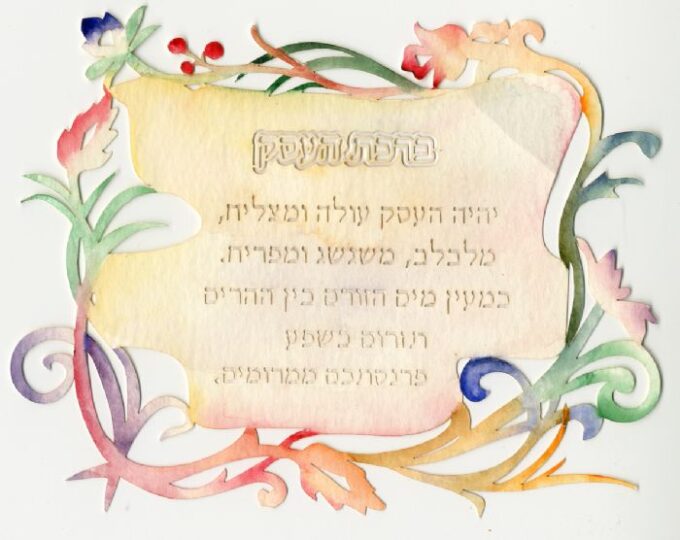 ברכת העסק
יהיה העסק עולה ומצליח,
מלבלב, משגשג ומפריח.
כמעין מים הזורם בין ההרים
תזרום בשפע
פרנסתכם ממרומים.